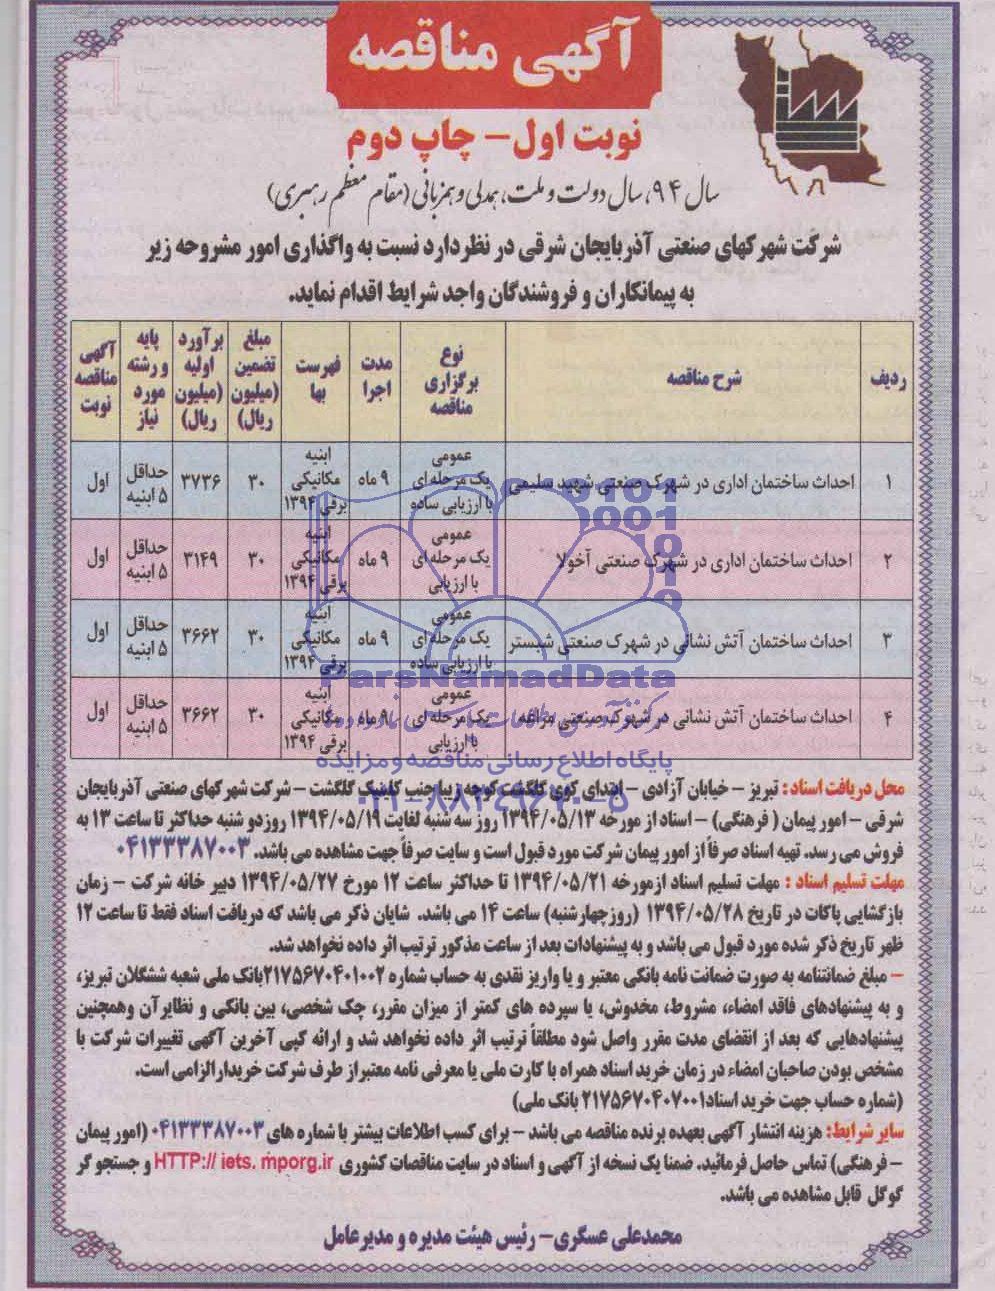 آگهی مناقصه
نوبت اول - چاپ دوم
سال ۹۴، سال دولت و ملت، همدلی و همزبانی (مقام معظم رهبری)
شرکت شهرکهای صنعتی آذربایجان شرقی در نظر دارد نسبت به واگذاری امور مشروحه زیر
به پیمانکاران و فروشندگان واجد شرایط اقدام نماید.
ردیف | شرح مناقصه | نوع برگزاری مناقصه | مدت اجرا | فهرست بها | مبلغ تضمین (میلیون ریال) | برآورد اولیه (میلیون ریال) | پایه و رشته مورد نیاز | آگهی مناقصه نوبت
۱ | احداث ساختمان اداری در شهرک صنعتی شهید سلیمی | عمومی یک مرحله ای با ارزیابی ساده | ۹ ماه | ابنیه مکانیکی برقی ۱۳۹۴ | ۳۰ | ۳۷۳۶ | حداقل ۵ ابنیه | اول
۲ | احداث ساختمان اداری در شهرک صنعتی آخولا | عمومی یک مرحله ای با ارزیابی | ۹ ماه | ابنیه مکانیکی برقی ۱۳۹۴ | ۳۰ | ۳۱۴۹ | حداقل ۵ ابنیه | اول
۳ | احداث ساختمان آتش نشانی در شهرک صنعتی شبستر | عمومی یک مرحله ای با ارزیابی ساده | ۹ ماه | ابنیه مکانیکی برقی ۱۳۹۴ | ۳۰ | ۳۶۶۲ | حداقل ۵ ابنیه | اول
۴ | احداث ساختمان آتش نشانی در شهرک صنعتی مراغه | عمومی یک مرحله ای با ارزیابی | ۹ ماه | ابنیه مکانیکی برقی ۱۳۹۴ | ۳۰ | ۳۶۶۲ | حداقل ۵ ابنیه | اول
ParsNamadData
پایگاه اطلاع رسانی مناقصه و مزایده
۰۲۱-۸۸۳۴۹۶۷۰-۵
محل دریافت اسناد: تبریز - خیابان آزادی - ابتدای کوی گلگشت کوچه زیبا جنب کلینیک گلگشت - شرکت شهرکهای صنعتی آذربایجان
شرقی - امور پیمان ( فرهنگی) - اسناد از مورخه ۱۳۹۴/۰۵/۱۳ روز سه شنبه لغایت ۱۳۹۴/۰۵/۱۹ روز دو شنبه حداکثر تا ساعت ۱۳ به
فروش می رسد. تهیه اسناد صرفاً از امور پیمان شرکت مورد قبول است و سایت صرفاً جهت مشاهده می باشد. ۰۴۱۳۳۳۸۷۰۰۳
مهلت تسلیم اسناد : مهلت تسلیم اسناد ازمورخه ۱۳۹۴/۰۵/۲۱ تا حداکثر ساعت ۱۲ مورخ ۱۳۹۴/۰۵/۲۷ دبیر خانه شرکت - زمان
بازگشایی پاکات در تاریخ ۱۳۹۴/۰۵/۲۸ (روزچهارشنبه) ساعت ۱۴ می باشد. شایان ذکر می باشد که دریافت اسناد فقط تا ساعت ۱۲
ظهر تاریخ ذکر شده مورد قبول می باشد و به پیشنهادات بعد از ساعت مذکور ترتیب اثر داده نخواهد شد.
- مبلغ ضمانتنامه به صورت ضمانت نامه بانکی معتبر و یا واریز نقدی به حساب شماره ۲۱۷۵۶۷۰۴۰۱۰۰۲بانک ملی شعبه ششگلان تبریز،
و به پیشنهادهای فاقد امضاء، مشروط، مخدوش، یا سپرده های کمتر از میزان مقرر، چک شخصی، بین بانکی و نظایر آن وهمچنین
پیشنهادهایی که بعد از انقضای مدت مقرر واصل شود مطلقاً ترتیب اثر داده نخواهد شد و ارائه کپی آخرین آگهی تغییرات شرکت با
مشخص بودن صاحبان امضاء در زمان خرید اسناد همراه با کارت ملی یا معرفی نامه معتبر از طرف شرکت خریدار الزامی است.
(شماره حساب جهت خرید اسناد۲۱۷۵۶۷۰۴۰۷۰۰۱ بانک ملی)
سایر شرایط: هزینه انتشار آگهی بعهده برنده مناقصه می باشد - برای کسب اطلاعات بیشتر با شماره های ۰۴۱۳۳۳۸۷۰۰۳ (امور پیمان
- فرهنگی) تماس حاصل فرمائید. ضمنا یک نسخه از آگهی و اسناد در سایت مناقصات کشوری HTTP:// iets. mporg.ir و جستجو گر
گوگل قابل مشاهده می باشد.
محمدعلی عسگری - رئیس هیئت مدیره و مدیر عامل